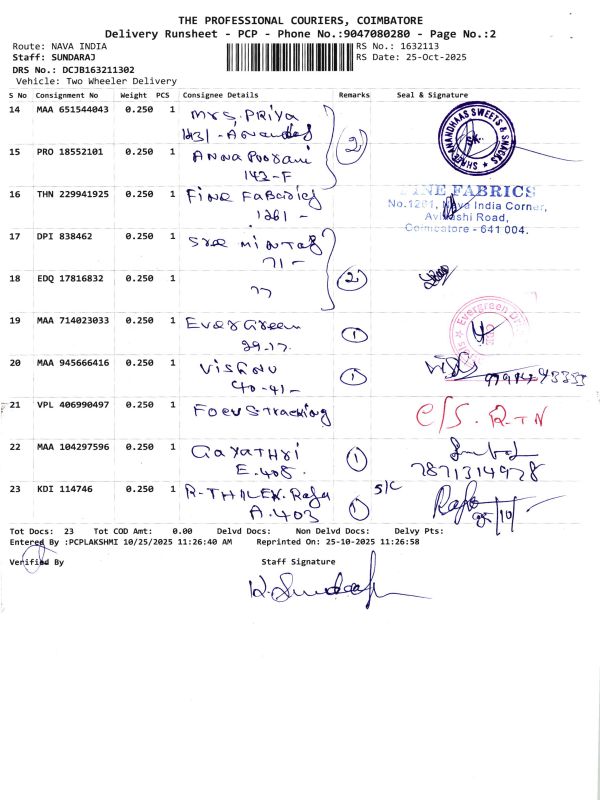 THE PROFESSIONAL COURIERS, COIMBATORE
Delivery Runsheet - PCP - Phone No.:9047080280 - Page No.:2
Route: NAVA INDIA RS No.: 1632113
Staff: SUNDARAJ RS Date: 25-Oct-2025
DRS No.: DCJB163211302
Vehicle: Two Wheeler Delivery
S No Consignment No Weight PCS Consignee Details Remarks Seal & Signature
14 MAA 651544043 0.250 1 Mrs. PRIYA
SHREE ANANDHAAS SWEETS & SNACKS
15 PRO 18552101 0.250 1 Anna Poorani 2
142-F
16 THN 229941925 0.250 1 Fine Fabrics
1261 -
FINE FABRICS
No.1261, Nava India Corner,
Avinashi Road,
Coimbatore - 641 004.
17 DPI 838462 0.250 1 Sree
71 -
18 EDQ 17816832 0.250 1 " 2
19 MAA 714023033 0.250 1 Evergreen 1
29.17
Evergreen
20 MAA 945666416 0.250 1 Vishnu 1
40-41 -
21 VPL 406990497 0.250 1 Focus Tracking C/S. RTN
22 MAA 104297596 0.250 1 Gayathri 1
E.408 7871314978
23 KDI 114746 0.250 1 R-THILEK. Raja 1 S/C
A.403 25/10/
Tot Docs: 23 Tot COD Amt: 0.00 Delvd Docs: Non Delvd Docs: Delvy Pts:
Entered By :PCPLAKSHMI 10/25/2025 11:26:40 AM Reprinted On: 25-10-2025 11:26:58
Verified By Staff Signature